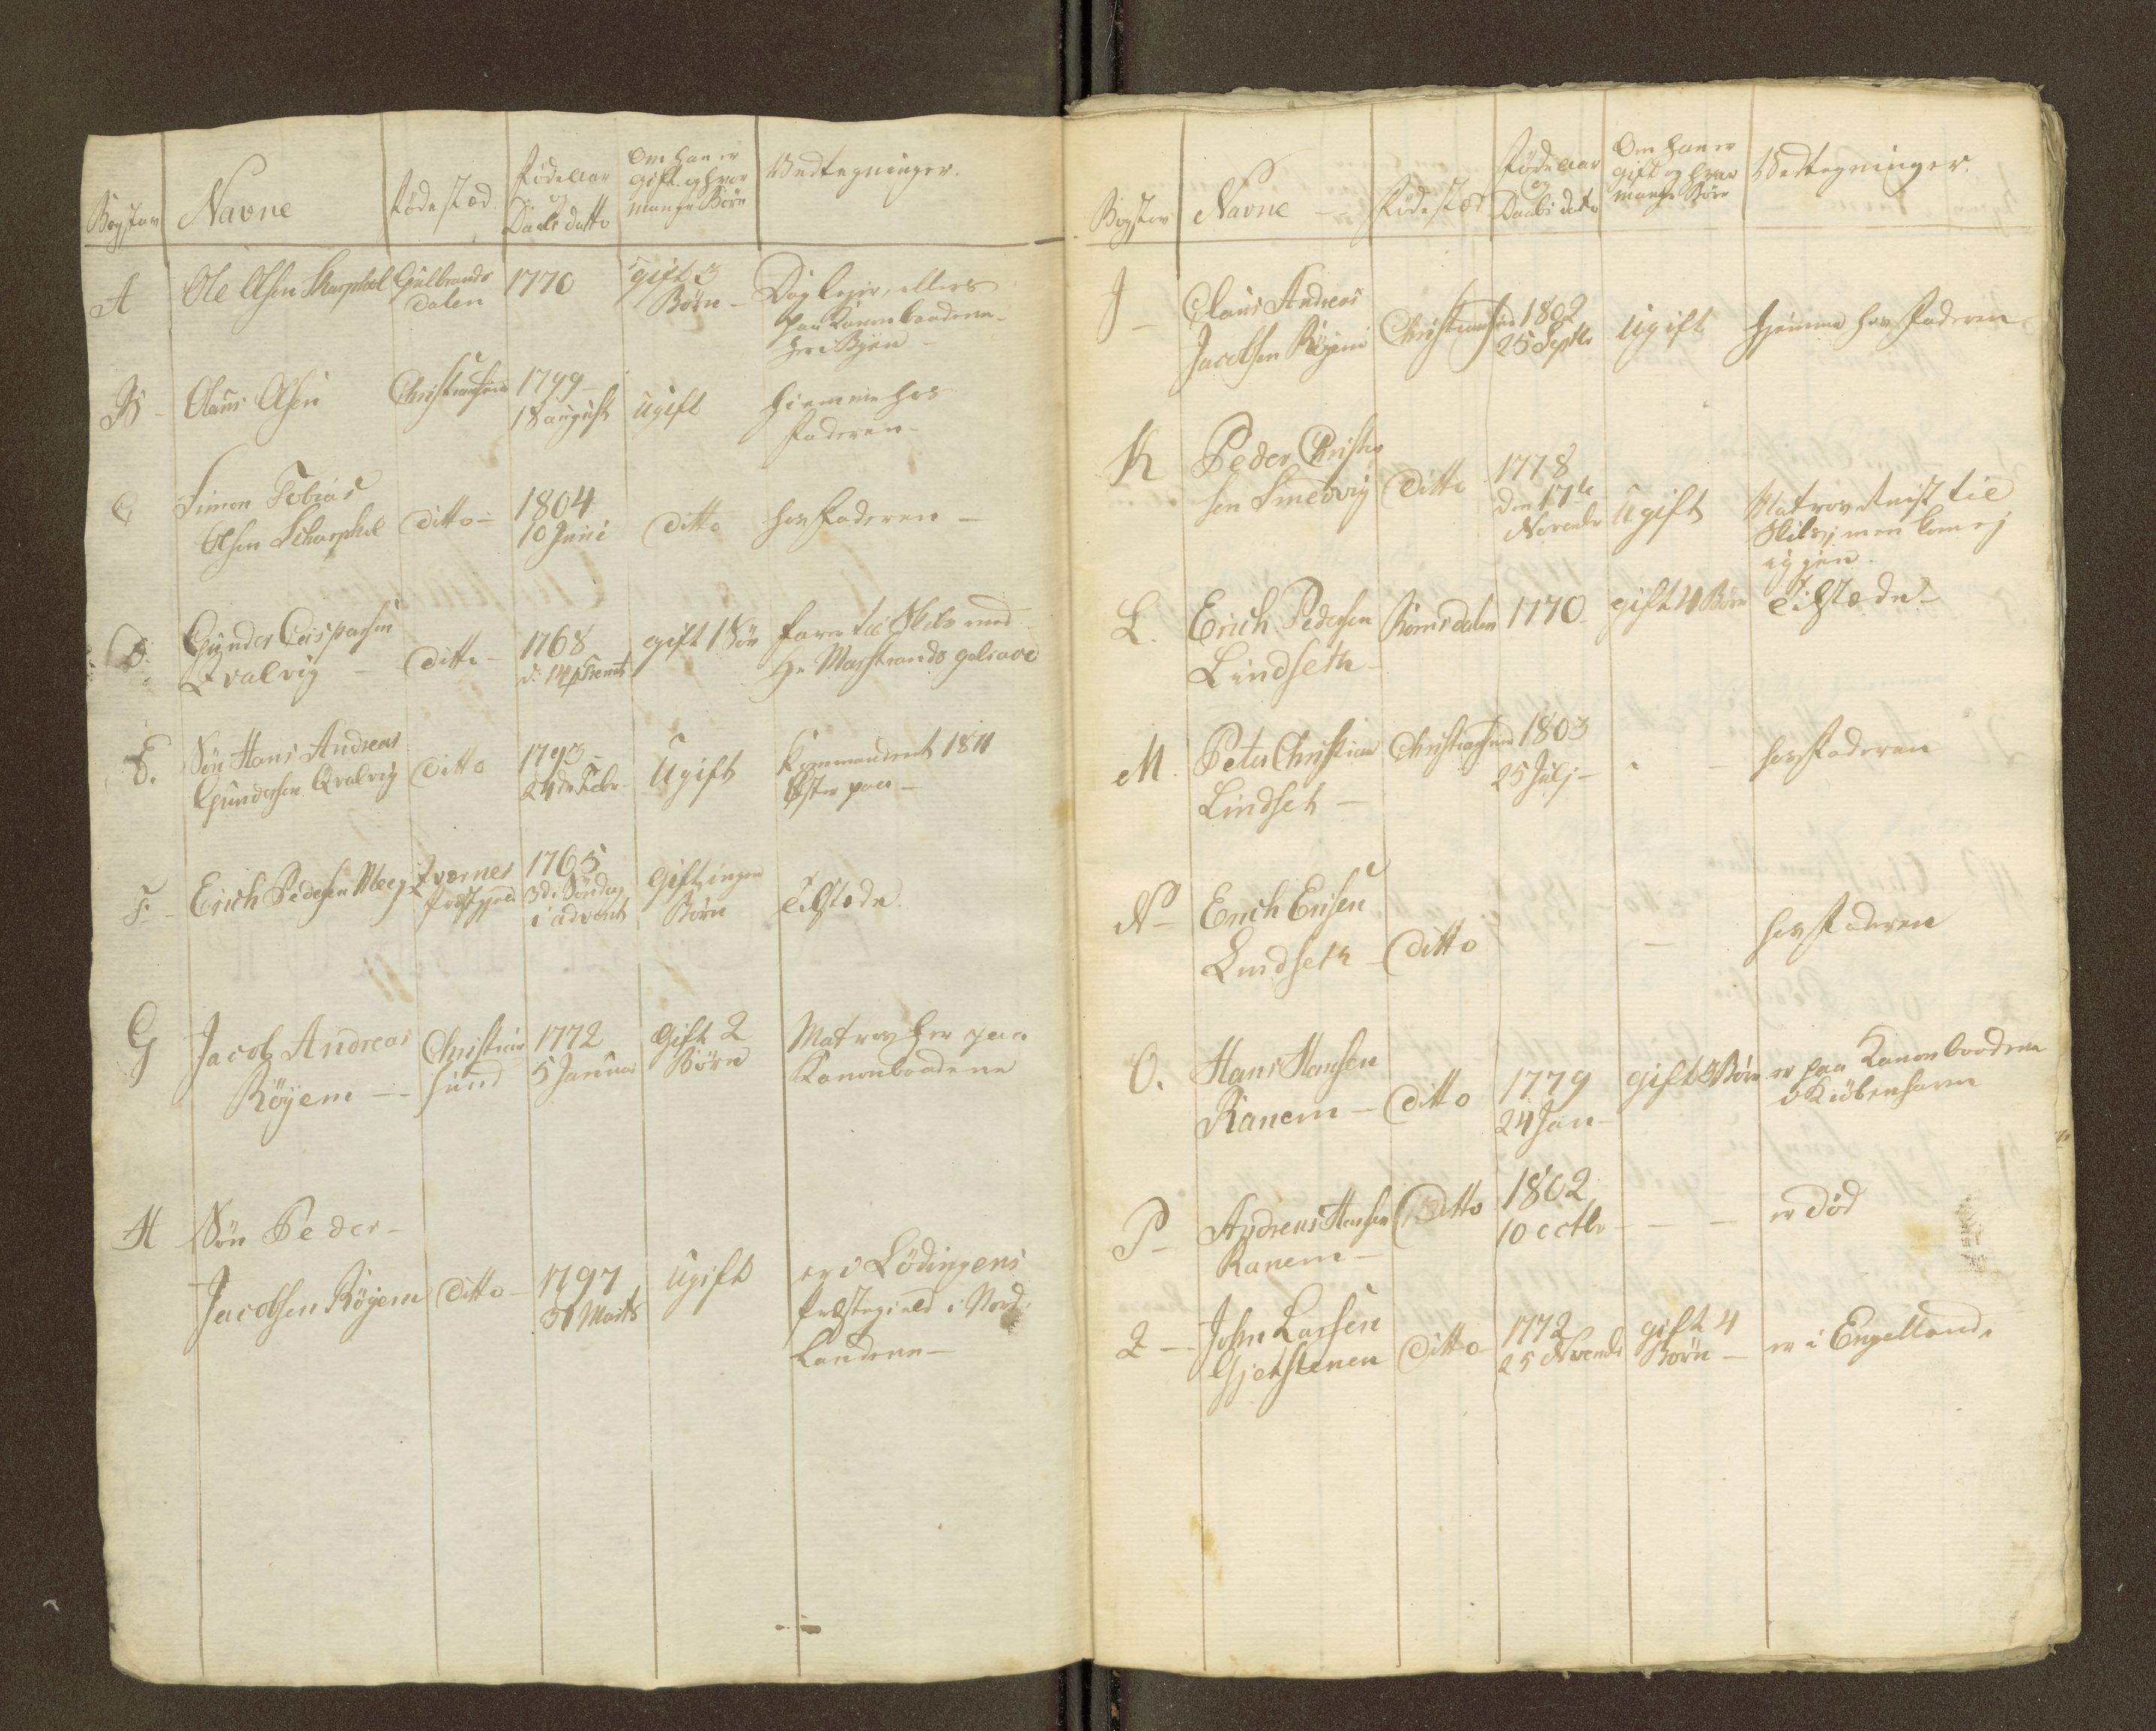 Bogstav
Navne
Födestæd
Födeaar
og
Daabs datto
Om han er
gift og hvor
mange Börn
Vedtegninger.
A
Ole Olsen Skarphol
Gulbrands
dalen
1770
gift 3
Börn -
Daglejer, ellers
paa Kanonbaadene
her i Byen -
B -
Olaus Olsen
Christiansund
1799 -
18 august
Ugift
hiemme hos
Faderen -
C
Simon Tobias
Olsen Scharphol
ditto -
1804
10 Junii
ditto
hos Faderen -
D.
Gunder Caspersen
Qvalvig -
ditto -
1768
gift 1 Sön
farer til Skibs med
Hr Marstrands galeave
E.
Sön Hans Andreas
Gundersen Qvalvig
ditto
1793 -
24de Febr
Ugift
Commanderet 1811
Öster paa -
F. -
Erich Pedersen Meej
Qværnes
Præstgield
1765
3de Söndag
i advent
Gift ingen
Börn
tilstæde.
G
Jacob Andreas
Röyem -
Christian
sund
1772
5 Januar
Gift 2
Börn
Matros her paa
Kanonbaadene
H
Sön Peder -
Jacobsen Röyem
ditto -
1797
31 Marts
Ugift
er i Lödingens
Præstegield i Nord-
Landene -
Bogstav
Navne -
Födestæd
Födeaar
og
Daabs datto
Om han er
gift og hvor
mange Börn
Vedtegninger.
J -
Claus Andreas
Jacobsen Röyem
Christiansund
1802
25 Septbr
Ugift
hjemme hos Faderen
K
Peder Christen
sen Smedvig
ditto
1778
den 17de
Novembr
Ugift
Matros reist til
Skibs, men kom ej
igjen.
L.
Erich Pedersen
Lindseth -
Romsdalen
1770.
gift 4 Börn
tilstæde -
M.
Peter Christian
Lindset -
Christiansund
1803
25 Julj -
-
hos Faderen
N -
Erich Erisen
Lindseth -
ditto
-
hos Faderen
O.
Hans Hansen
Ranem -
ditto
1779
24 Jan -
gift 3 Börn
er paa Kanonbaadene
v Kiöbenhavn
P -
Andreas Hansen
Ranem -
ditto
1802
10 octbr -
- -
er död
Q -
John Larsen
Gjetstenen
ditto -
1772
25 Novembr
gift 4
Börn -
er i Engelland.